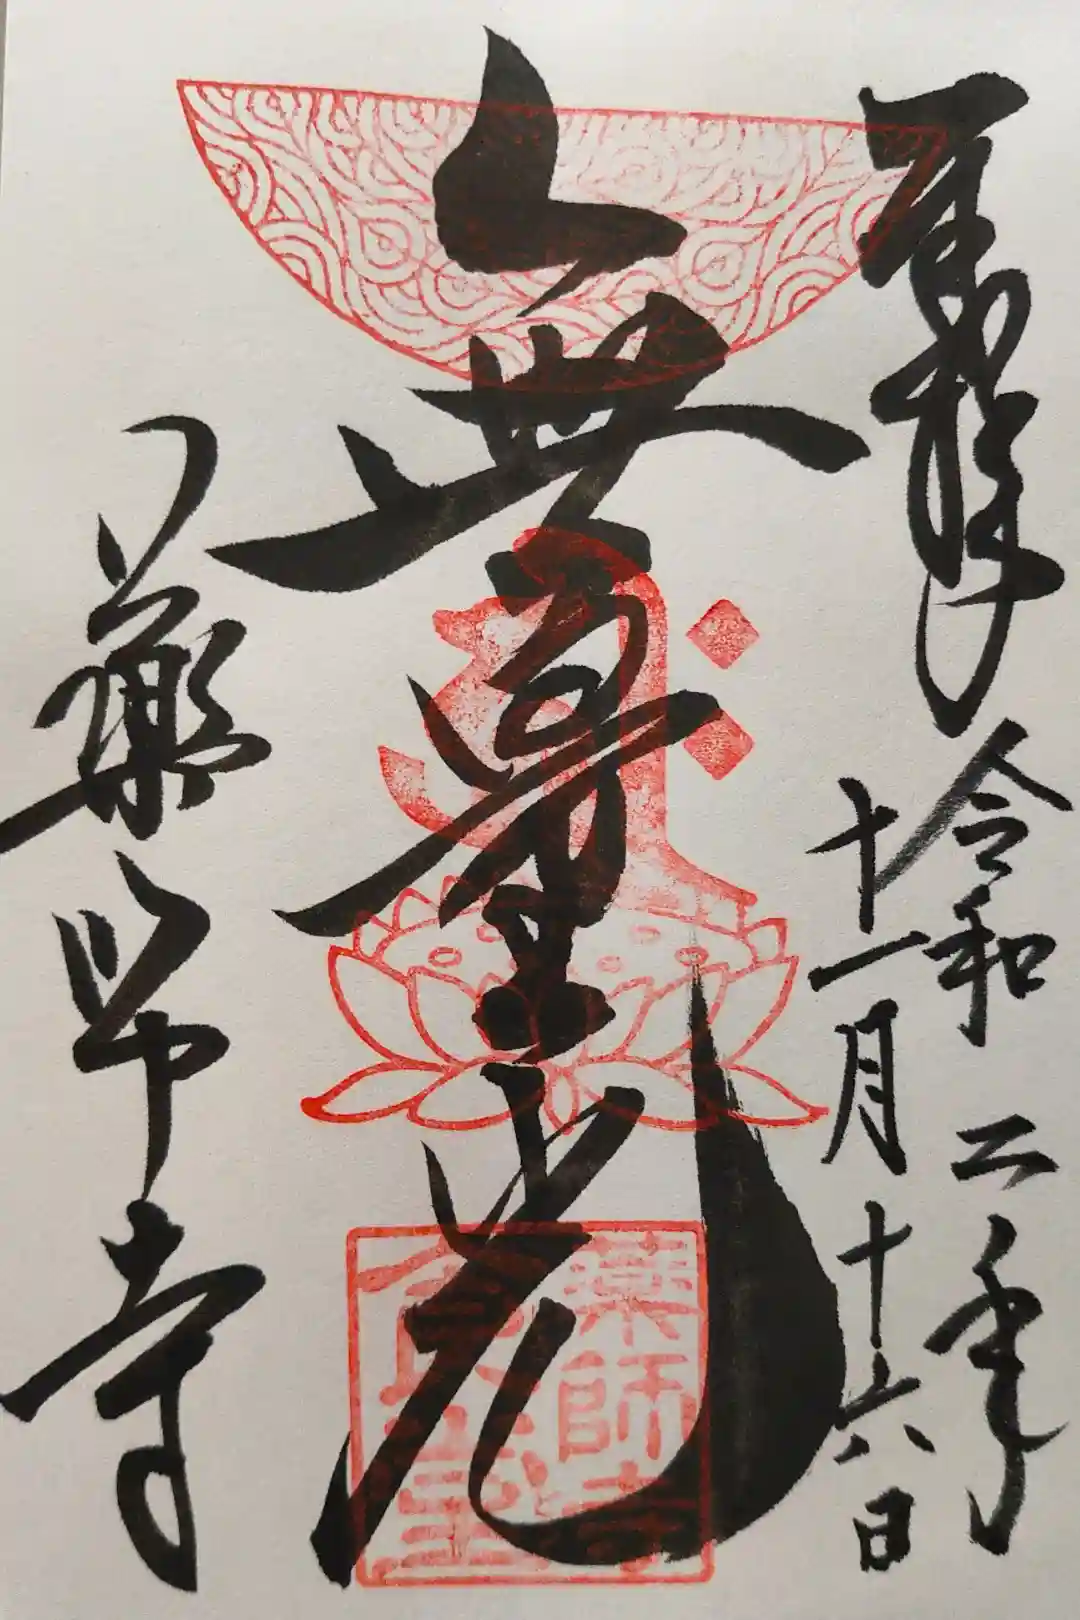 奉拝
令和二年
十一月十六日
無量光
薬師寺
薬師寺
食堂